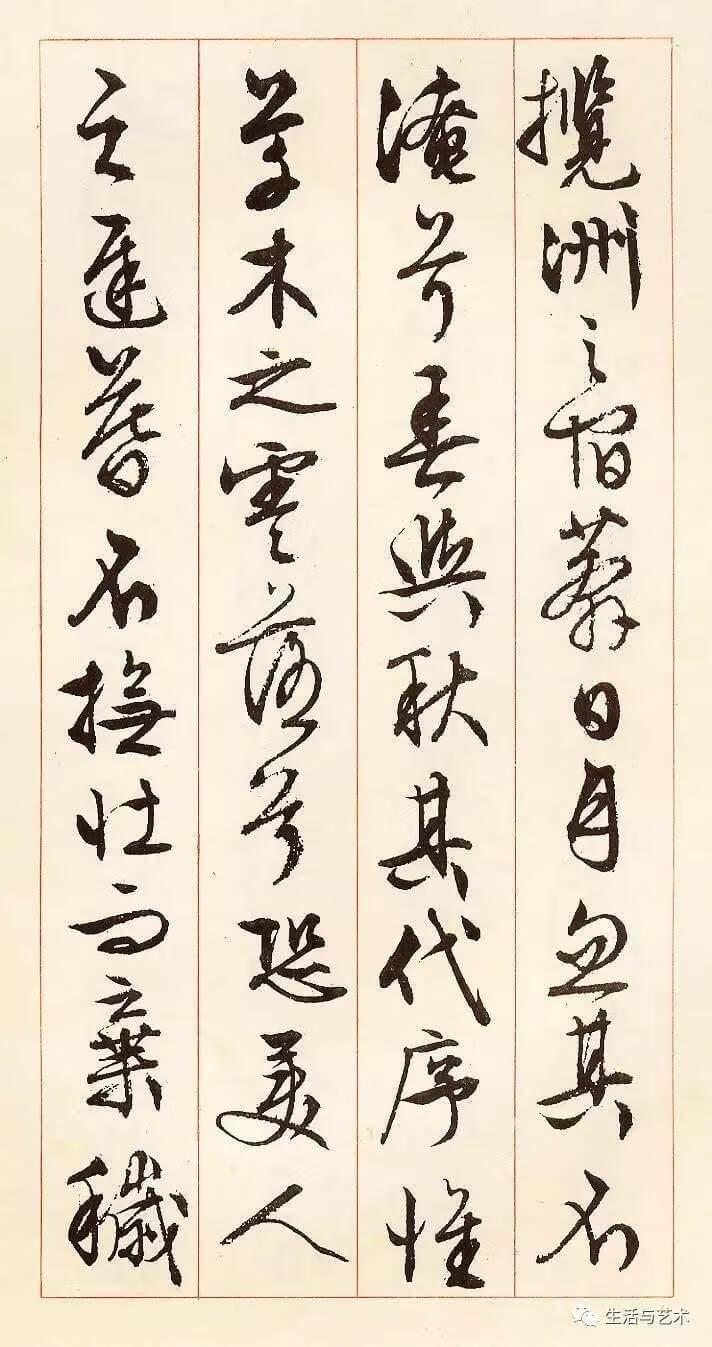 揽洲之宿莽日月忽其不
淹兮春與秋其代序惟
草木之零落兮恐美人
之遲暮不撫壯而棄穢
生活与艺术